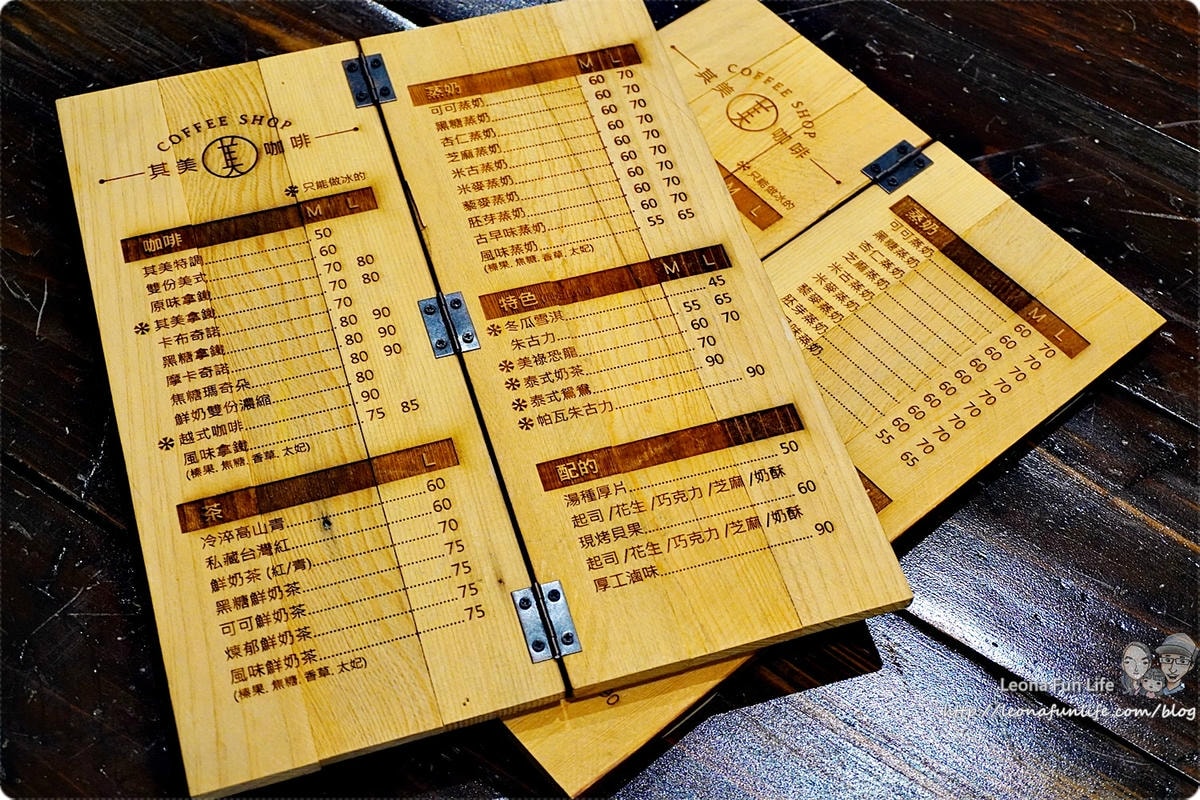 COFFEE SHOP
其美 美 咖啡
✻只能做冰的
咖啡 M L
其美特調 50
雙份美式 60
原味拿鐵 70 80
✻其美拿鐵 70 80
卡布奇諾 70
黑糖拿鐵 80 90
摩卡奇諾 80 90
焦糖瑪奇朵 80 90
鮮奶雙份濃縮 80
✻越式咖啡 90
風味拿鐵 75 85
(榛果, 焦糖, 香草, 太妃)
茶 L
冷淬高山青 60
私藏台灣紅 60
鮮奶茶 (紅/青) 70
黑糖鮮奶茶 75
可可鮮奶茶 75
郁鮮奶茶 75
風味鮮奶茶 75
(榛果, 焦糖, 香草, 太妃)
蒸奶 M L
可可蒸奶 60 70
黑糖蒸奶 60 70
杏仁蒸奶 60 70
芝麻蒸奶 60 70
米古蒸奶 60 70
米麥蒸奶 60 70
藜麥蒸奶 60 70
胚芽蒸奶 60 70
古早味蒸奶 60 70
風味蒸奶 55 65
(榛果, 焦糖, 香草, 太妃)
特色 M L
✻冬瓜雪淇 45
朱古力 55 65
✻美祿恐龍 60 70
✻泰式奶茶 70
✻泰式鴛鴦 90
✻帕瓦朱古力 90
配的
湯種厚片 50
起司 /花生 /巧克力 /芝麻 /奶酥
現烤貝果 60
起司 /花生 /巧克力 /芝麻 /奶酥
厚工滷味 90
COFFEE SHOP
其美 美 咖啡
✻只能做冰的
M L
蒸奶 M L
可可蒸奶 60 70
黑糖蒸奶 60 70
杏仁蒸奶 60 70
芝麻蒸奶 60 70
米古蒸奶 60 70
米麥蒸奶 60 70
藜麥蒸奶 60 70
胚芽蒸奶 60 70
味蒸奶 60 70
蒸奶 55 65
Leona Fun Life
http://leonafunlife.com/blog